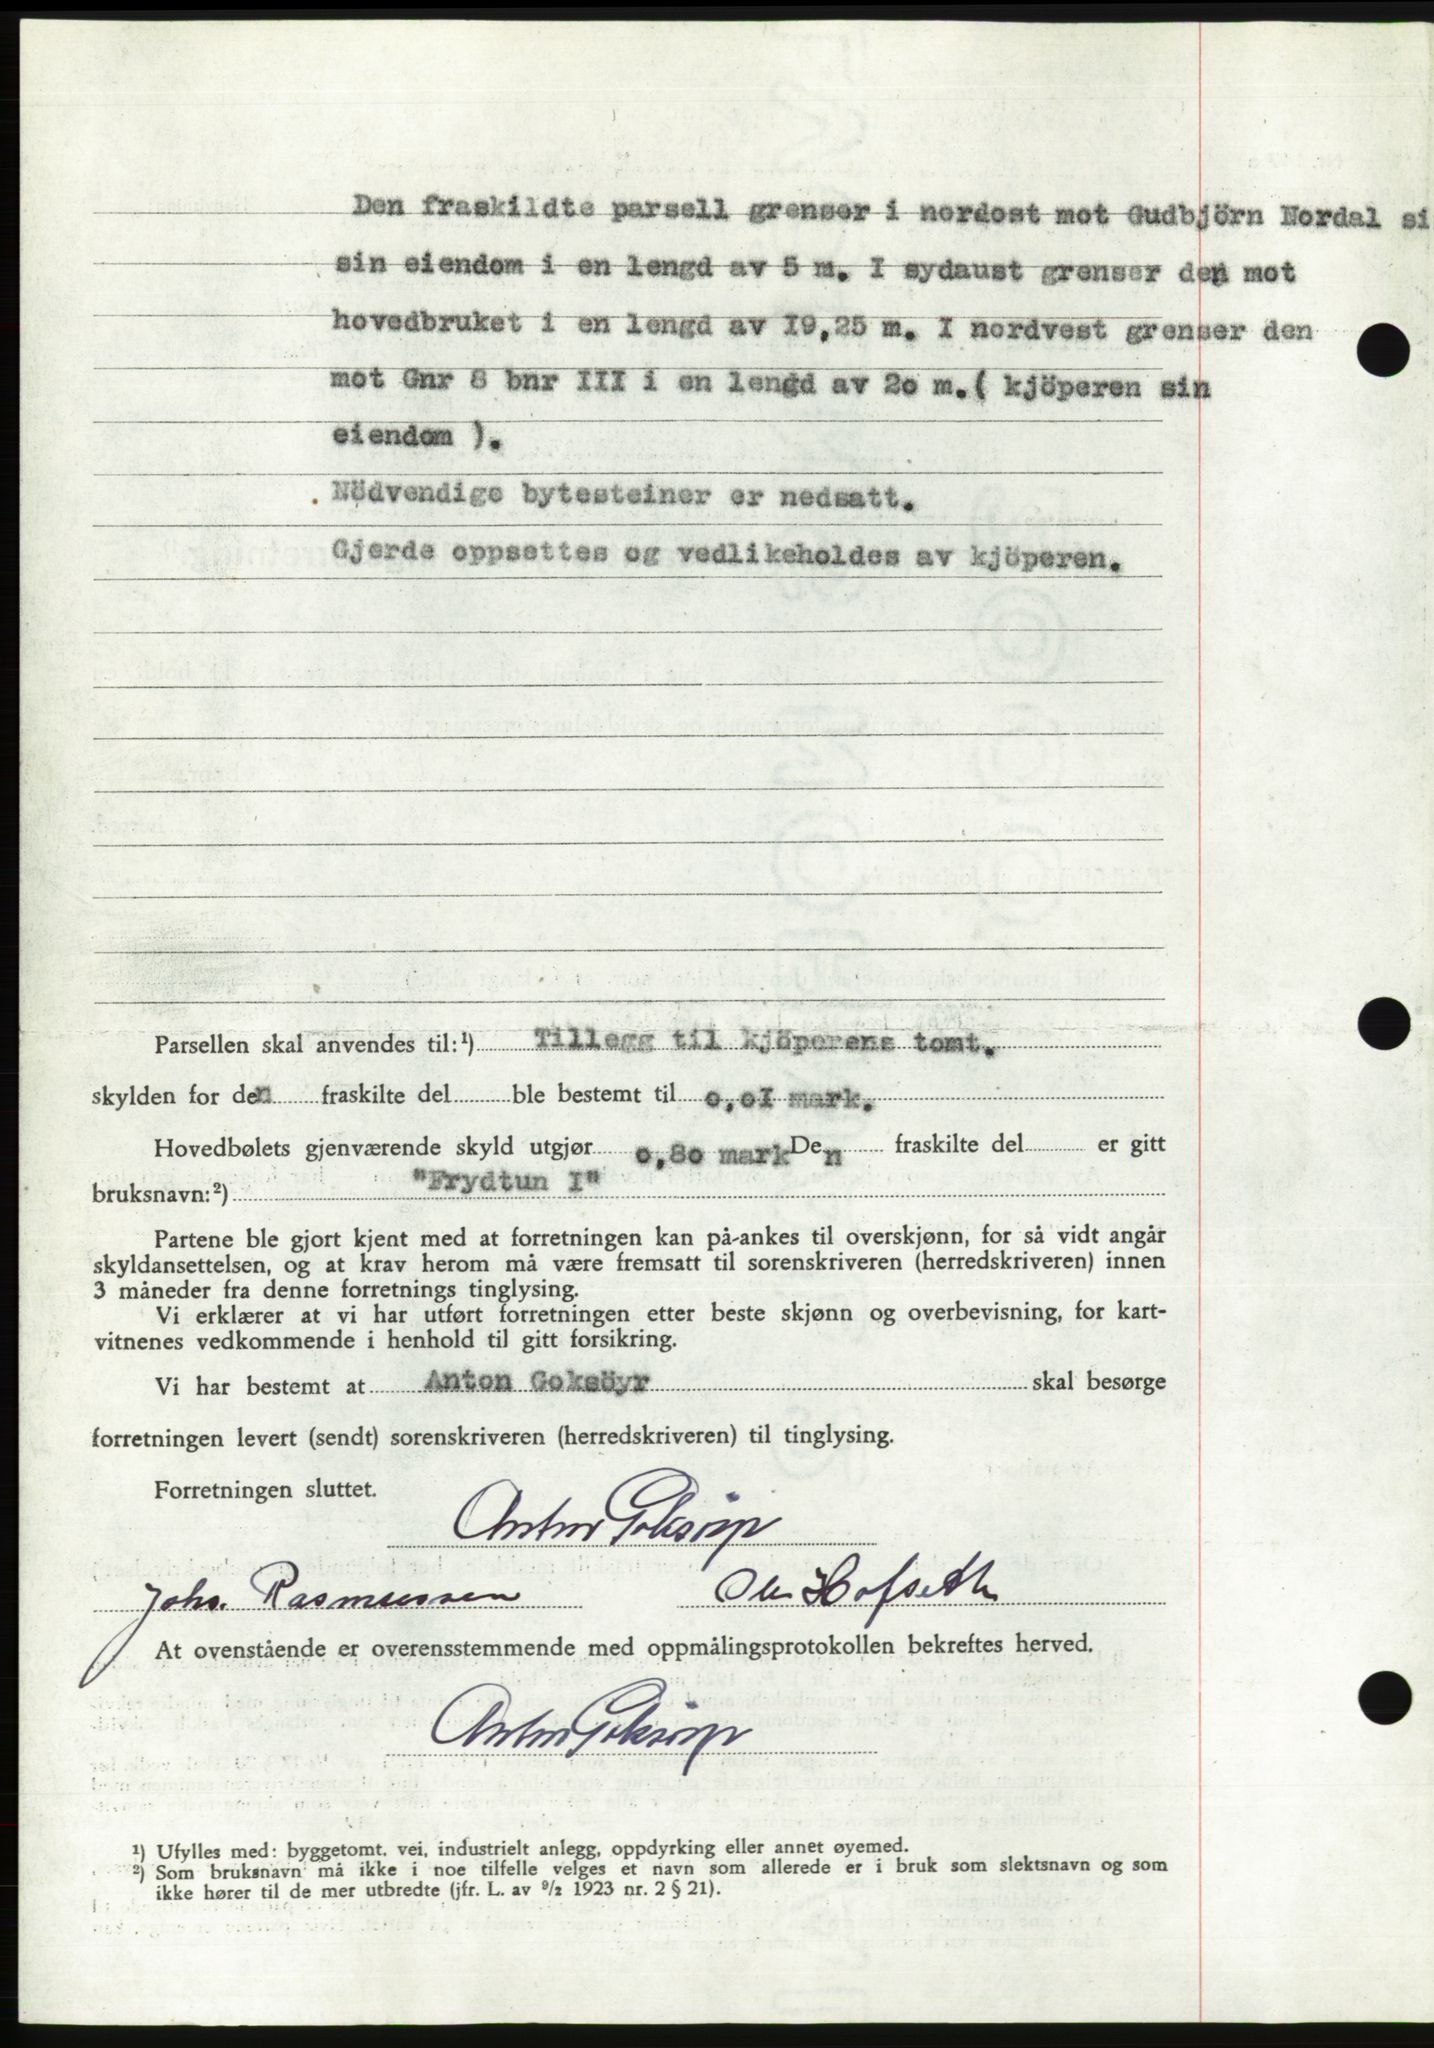 Den fraskildte parsell grenser i nordost mot Gudbjörn Nordal si
sin eiendom i en lengd av 5 m. I sydaust grenser den mot
hovedbruket i en lengd av I9,25 m. I nordvest grenser den
mot Gnr 8 bnr III i en lengd av 2o m.( kjöperen sin
eiendom ).
Nödvendige bytesteiner er nedsatt.
Gjerde oppsettes og vedlikeholdes av kjöperen.
Parsellen skal anvendes til:¹) Tillegg til kjöperens tomt.
skylden for den fraskilte del ble bestemt til o,oI mark.
Hovedbølets gjenværende skyld utgjør o,8o mark Den fraskilte del er gitt
bruksnavn:²) "Frydtun I"
Partene ble gjort kjent med at forretningen kan på-ankes til overskjønn, for så vidt angår
skyldansettelsen, og at krav herom må være fremsatt til sorenskriveren (herredskriveren) innen
3 måneder fra denne forretnings tinglysing.
Vi erklærer at vi har utført forretningen etter beste skjønn og overbevisning, for kart-
vitnenes vedkommende i henhold til gitt forsikring.
Vi har bestemt at Anton Goksöyr skal besørge
forretningen levert (sendt) sorenskriveren (herredskriveren) til tinglysing.
Forretningen sluttet.
Anton Goksöyr
Johs. Rasmussen Ole Hofseth
At ovenstående er overensstemmende med oppmålingsprotokollen bekreftes herved.
Anton Goksöyr
¹) Ufylles med: byggetomt, vei, industrielt anlegg, oppdyrking eller annet øyemed.
²) Som bruksnavn må ikke i noe tilfelle velges et navn som allerede er i bruk som slektsnavn og som
ikke hører til de mer utbredte (jfr. L. av ⁹/₂ 1923 nr. 2 § 21).